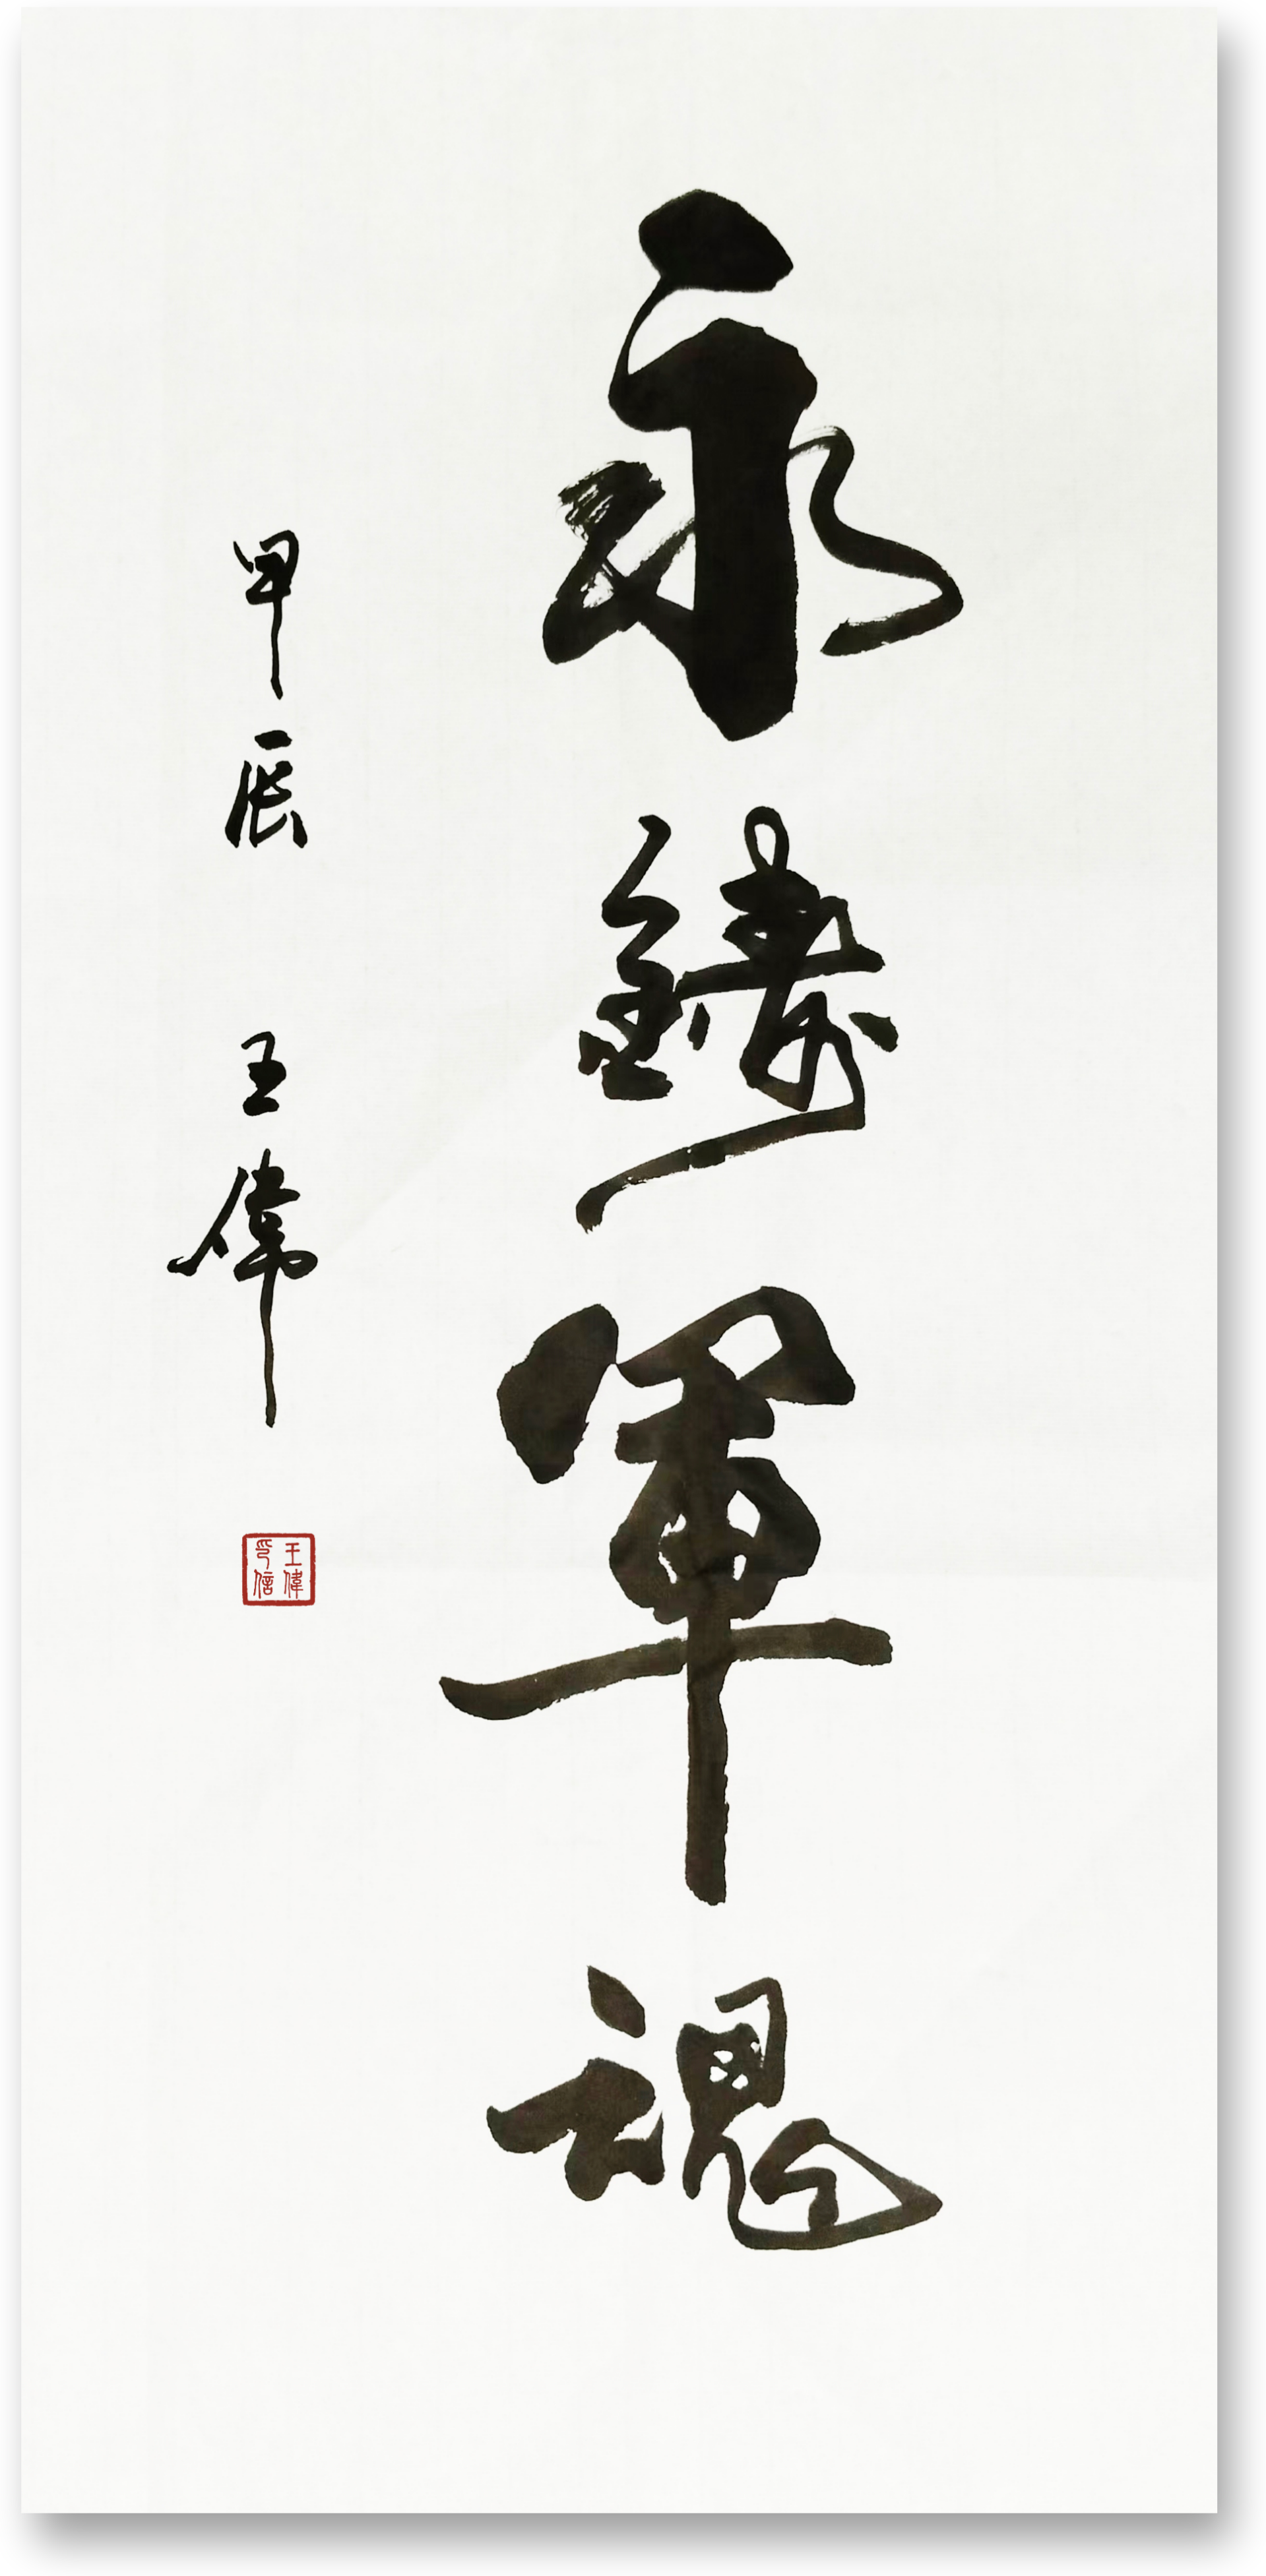 永鑄軍魂
甲辰 王偉
王偉
印信